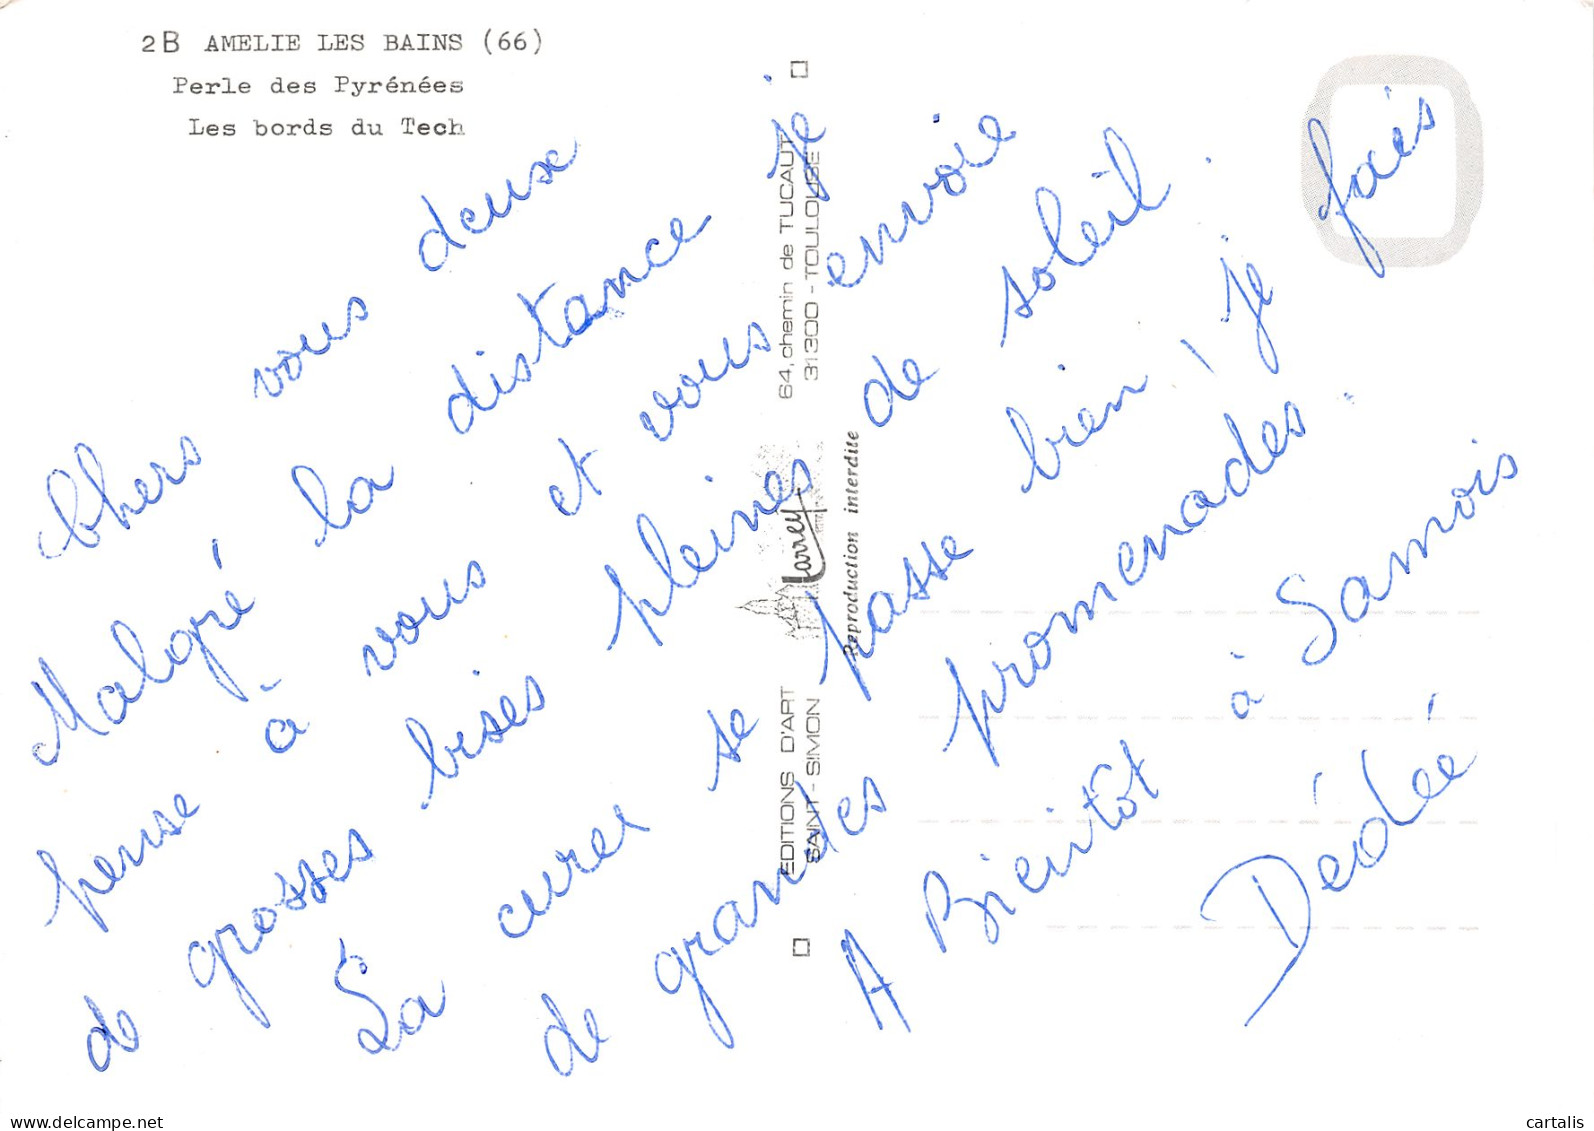 2B AMELIE LES BAINS (66)
Perle des Pyrénées
Les bords du Tech
Chers vous deux
Malgré la distance je
pense à vous et vous envoie
de grosses bises pleines de soleil.
La cure se passe bien, je fais
de grandes promenades.
A Bientôt à Samois
Dédée
EDITIONS D'ART
SAINT-SIMON
64, chemin de TUCAUT
31300 - TOULOUSE
Larrey
Reproduction interdite
cartalis
www.delcampe.net